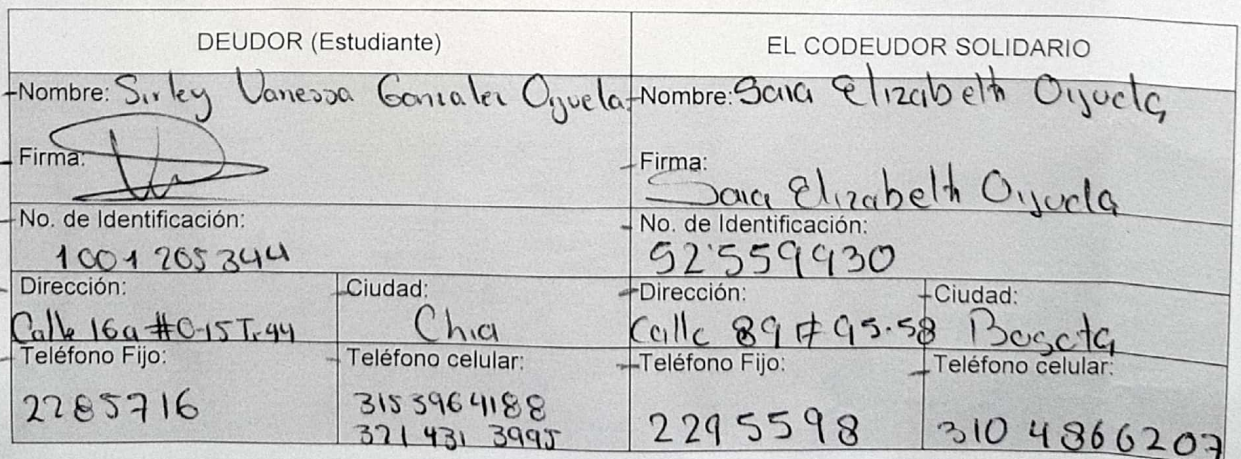 DEUDOR (Estudiante)
EL CODEUDOR SOLIDARIO
Nombre: Sirley Vanessa Gonzalez Oyuela
Nombre: Sara Elizabeth Oyuela
Firma:
Firma:
Sara Elizabeth Oyuela
No. de Identificación:
1001205344
No. de Identificación:
52'559930
Dirección:
Calle 16a #0-15 T.44
Ciudad:
Chia
Dirección:
Calle 89 # 95-58
Ciudad:
Bogota
Teléfono Fijo:
2285716
Teléfono celular:
315 5964188
321 431 3995
Teléfono Fijo:
2295598
Teléfono celular:
310 4866207